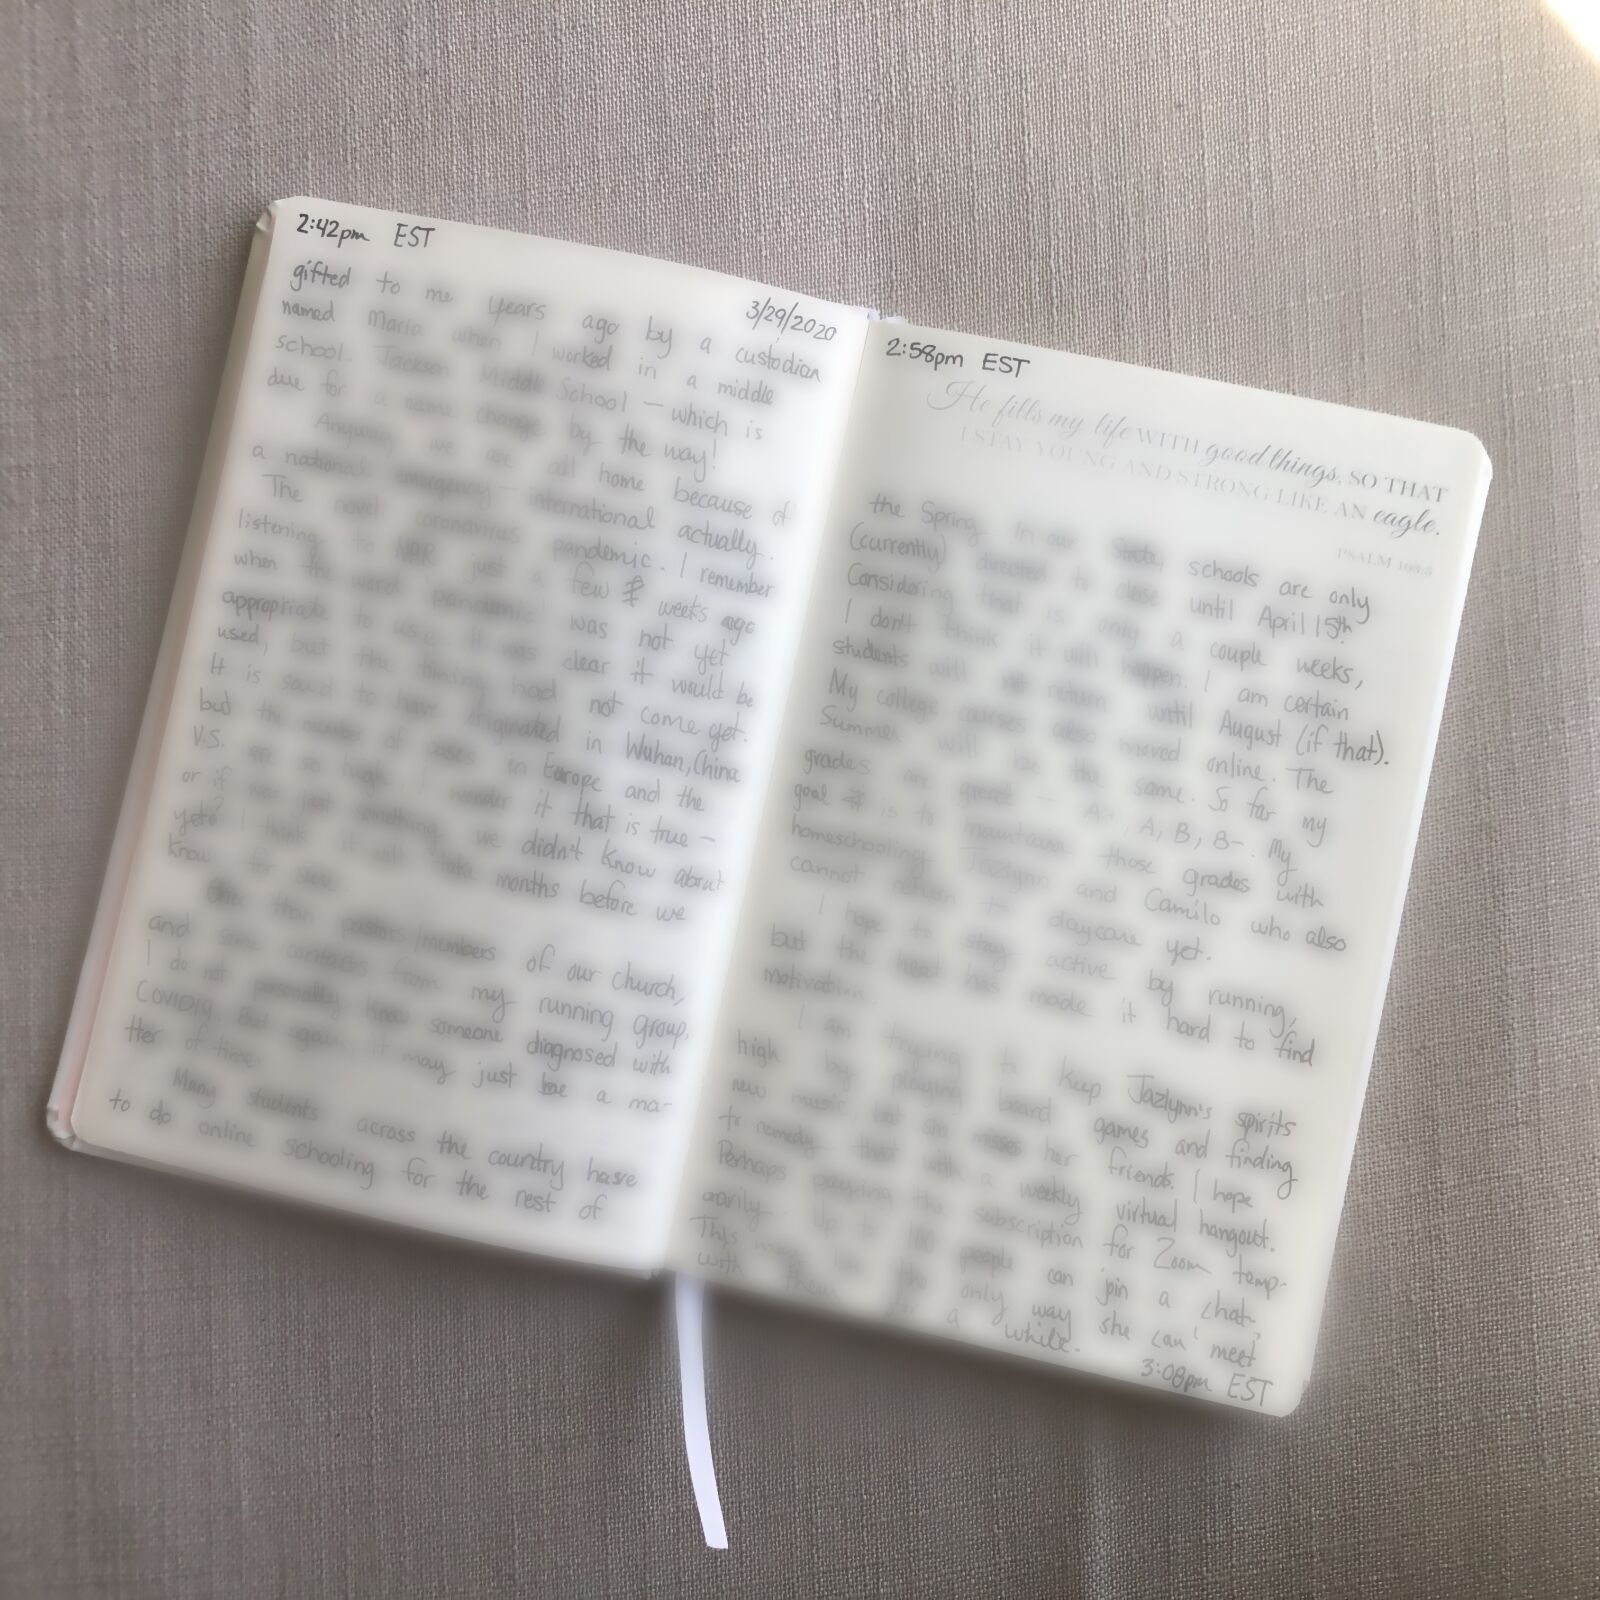 2:42pm EST
3/29/2020
gifted to me years ago by a custodian
named Maria when I worked in a middle
school. Jackson Middle School — which is
due for a name change by the way!
Anyway, we are all home because of
a national emergency — international actually.
The novel coronavirus pandemic. I remember
listening to NPR just a few weeks ago
when the word 'pandemic' was not yet
appropriate to use. It was clear it would be
used, but the timing had not come yet.
It is said to have originated in Wuhan, China
but the number of cases in Europe and the
U.S. are so high I wonder if that is true —
or if was just something we didn't know about
yet? I think it will take months before we
know for sure.
Other than pastors/members of our church,
and some contacts from my running group,
I do not personally know someone diagnosed with
COVID19. But again, it may just be a ma-
tter of time.
Many students across the country have
to do online schooling for the rest of
2:58pm EST
He fills my life WITH good things, SO THAT
I STAY YOUNG AND STRONG LIKE AN eagle.
PSALM 103:5
the Spring. In our State, schools are only
(currently) directed to close until April 15th.
Considering that is only a couple weeks,
I don't think it will happen. I am certain
students will not return until August (if that).
My college courses also moved online. The
Summer will be the same. So far my
grades are great — A+, A, B, B-. My
goal is to maintain those grades with
homeschooling Jazlynn and Camilo who also
cannot return to daycare yet.
I hope to stay active by running,
but the heat has made it hard to find
motivation.
I am trying to keep Jazlynn's spirits
high by playing board games and finding
new music, but she misses her friends. I hope
to remedy that with a weekly virtual hangout.
Perhaps paying the subscription for Zoom temp-
orarily. Up to 100 people can join a chat.
This may be the only way she can 'meet'
with them for a while.
3:08pm EST